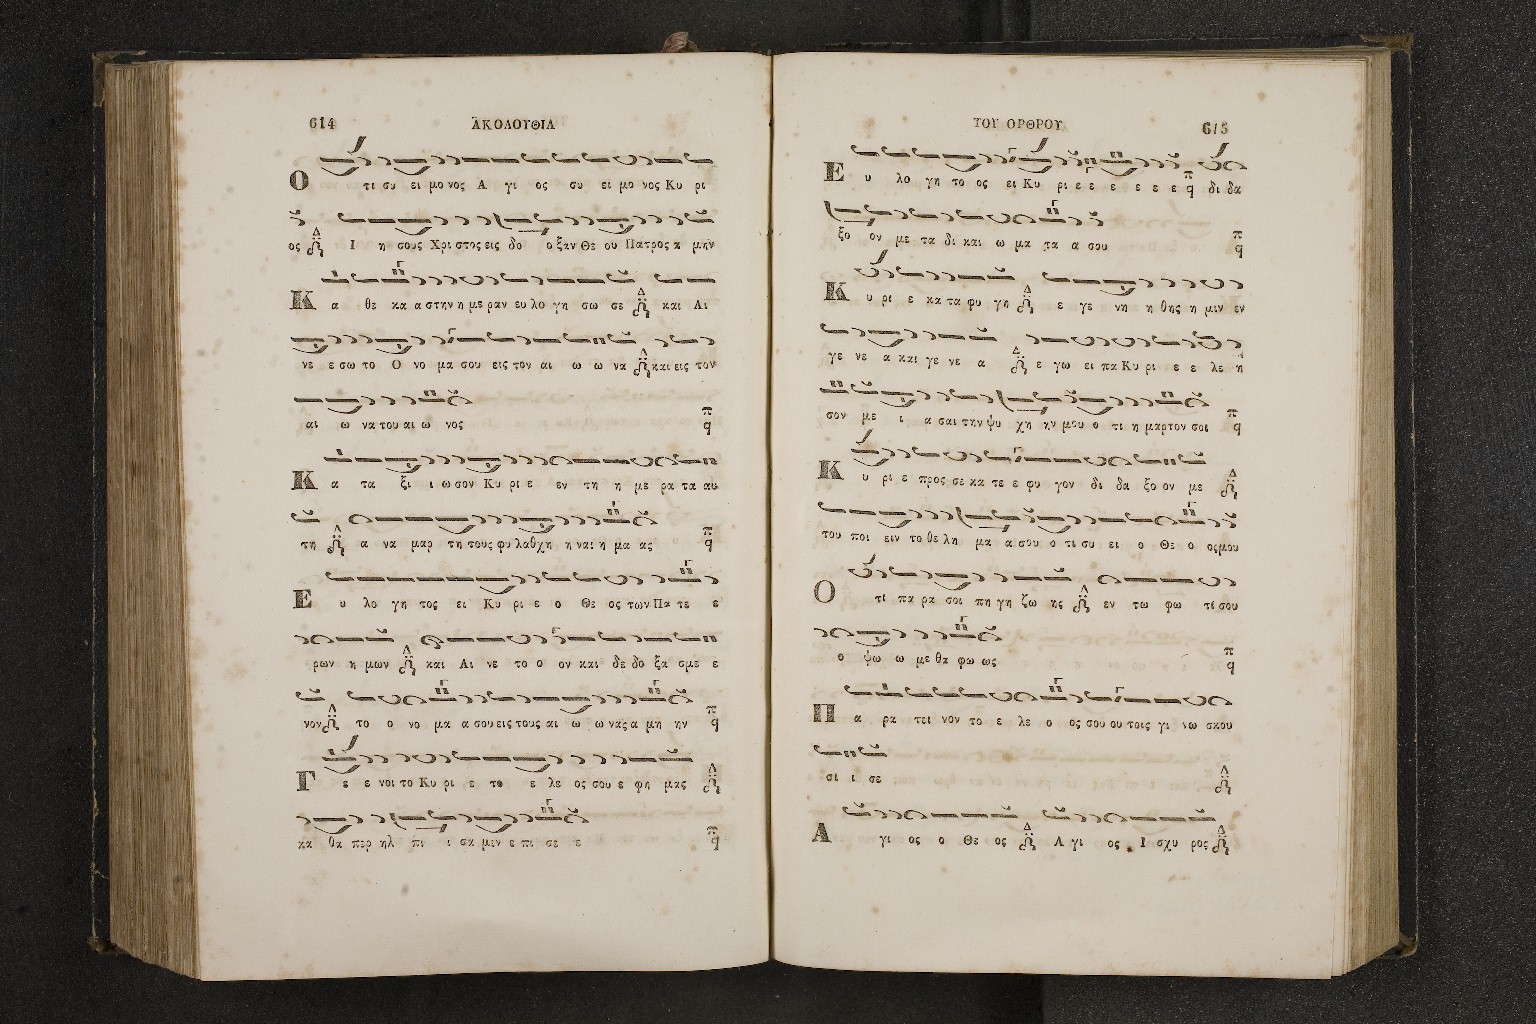 614 ΑΚΟΛΟΥΘΙΑ
Ο τι συ ει μο νος Α γι ος συ ει μο νος Κυ ρι
ος Ι η σους Χρι στος εις δο ο ξαν Θε ου Πατρος α μην
Κ α θε κα α στην η με ραν ευ λο γη σω σε και Αι
νε ε σω το Ο νο μα σου εις τον αι ω ω να και εις τον
αι ω να του αι ω νος
Κ α τα ξι ι ω σον Κυ ρι ε εν τη η με ρα τα αυ
τη α να μαρ τη τους φυ λαθχη η ναι η μα ας
Ε υ λο γη τος ει Κυ ρι ε ο Θε ος των Πα τε ε
ρων η μων και Αι νε το ο ον και δε δο ξα σμε ε
νον το ο νο μα α σου εις τους αι ω ω νας α μη ην
Γ ε ε νοι το Κυ ρι ε το ε λε ος σου ε φη μας
κα θα περ ηλ πι ι σα μεν ε πι σε ε
ΤΟΥ ΟΡΘΡΟΥ 615
Ε υ λο γη το ος ει Κυ ρι ε ε ε ε ε ε δι δα
ξο ον με τα δι και ω μα τα α σου
Κ υ ρι ε κα τα φυ γη ε γε νη η θης η μιν εν
γε νε α και γε νε α ε γω ει πα Κυ ρι ε ε λε η
σον με ι α σαι την ψυ χη ην μου ο τι η μαρτον σοι
Κ υ ρι ε προς σε κα τε ε φυ γον δι δα ξο ον με
του ποι ειν το θε λη μα α σου ο τι συ ει ο Θε ο ος μου
Ο τι πα ρα σοι πη γη ζω ης εν τω φω τι σου
ο ψω ω με θα φω ως
Π α ρα τει νον το ε λε ο ος σου ου τοις γι νω σκου
σι ι σε
Α γι ος ο Θε ος Α γι ος Ι σχυ ρος